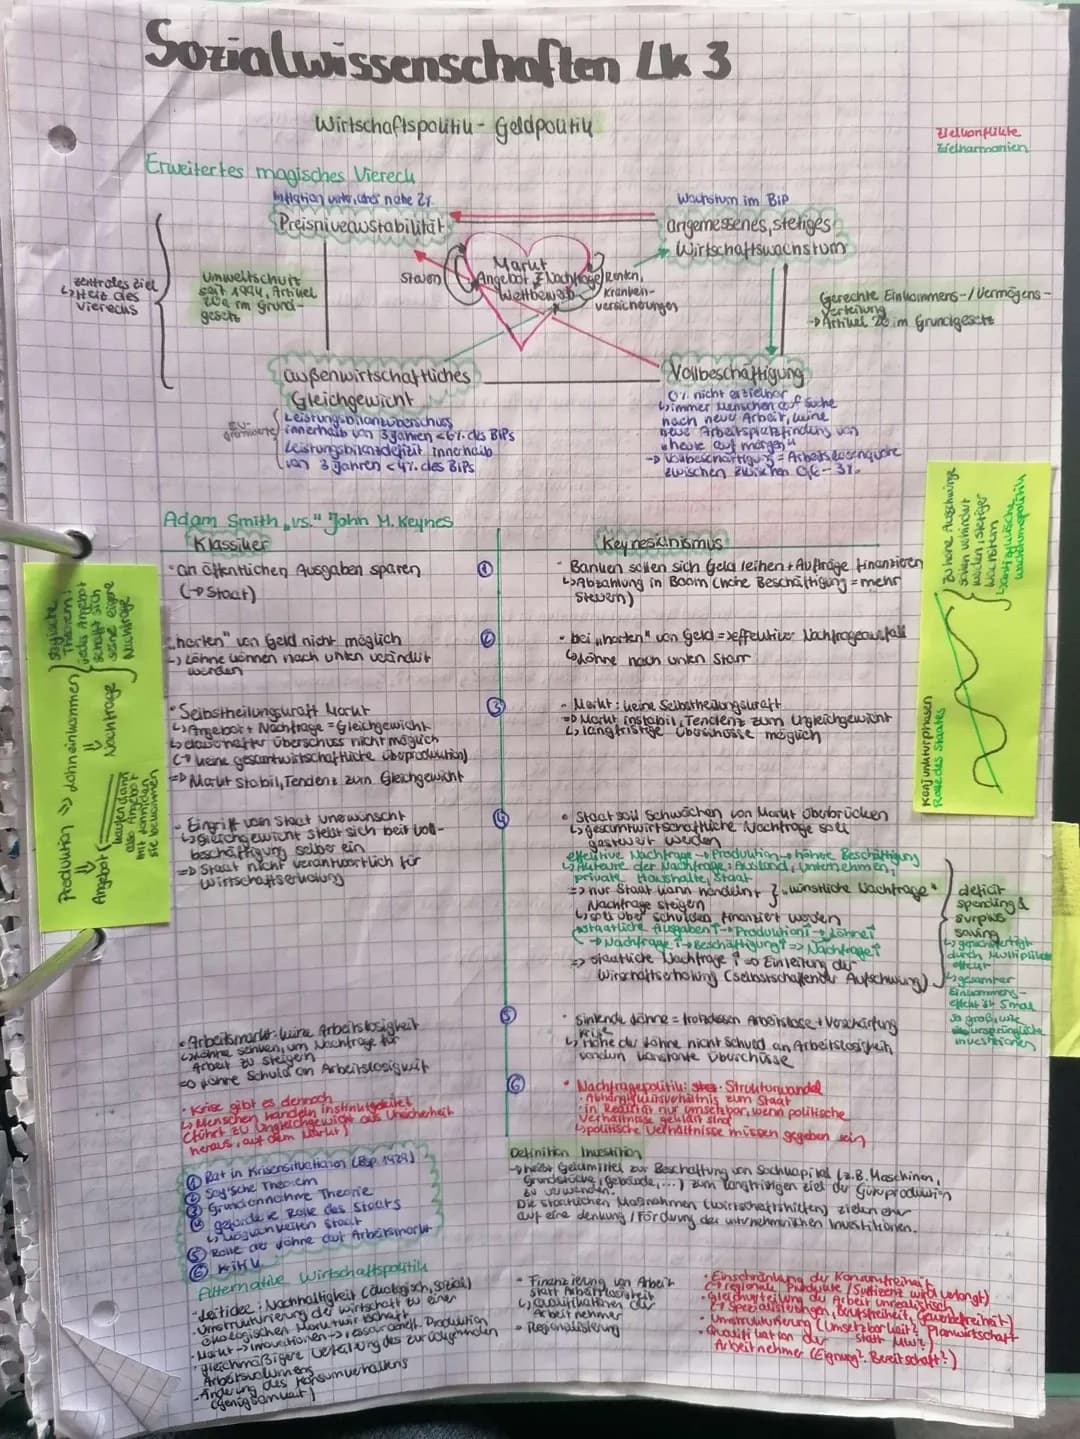 Sozialwissenschaften Lk 3
Wirtschaftspolitik - Geldpolitik
Zielkonflikte
Zielharmonien
Erweitertes magisches Viereck
Inflation unter, aber nahe 2%
Preisniveaustabilität
Wachstum im BIP
angemessenes, stetiges
Wirtschaftswachstum
zentrales Ziel
↳ Herz des
Vierecks
Umweltschutz
seit 1994, Artikel
20a im Grund-
gesetz
Steuern
Markt
Angebot ⇄ Nachfrage
Wettbewerb
Renten,
Kranken-
versicherungen
Gerechte Einkommens-/Vermögens-
verteilung
→ Artikel 20 im Grundgesetz
außenwirtschaftliches
Gleichgewicht
EU-
Grenzwerte
Leistungsbilanzüberschuss
innerhalb von 3 Jahren <6% des BIPs
Leistungsbilanzdefizit innerhalb
von 3 Jahren <4% des BIPs
Vollbeschäftigung
0% nicht erzielbar
↳ immer Menschen auf Suche
nach neuer Arbeit, keine
neue Arbeitsplatzfindung von
"heute auf morgen"
→ Vollbeschäftigung = Arbeitslosenquote
zwischen zwischen 0,6 - 3%
Adam Smith "vs." John M. Keynes
Klassiker
Keynesianismus
· an öffentlichen Ausgaben sparen
(→ Staat)
①
· Banken sollen sich Geld leihen + Aufträge finanzieren
↳ Abzahlung in Boom (hohe Beschäftigung = mehr
Steuern)
"horten" von Geld nicht möglich
→ Löhne können nach unten verändert
werden
②
· bei "horten" von Geld => effektiver Nachfrageausfall
↳ Löhne nach unten starr
· Selbstheilungskraft Markt
↳ Angebot + Nachfrage = Gleichgewicht
↳ dauerhafter Überschuss nicht möglich
(→ keine gesamtwirtschaftliche Überproduktion)
=> Markt stabil, Tendenz zum Gleichgewicht
③
- Markt: keine Selbstheilungskraft
=> Markt instabil, Tendenz zum Ungleichgewicht
↳ langfristige Überschüsse möglich
- Eingriff von Staat unerwünscht
↳ Gleichgewicht stellt sich bei Voll-
beschäftigung selber ein
=> Staat nicht verantwortlich für
Wirtschaftserholung
④
· Staat soll Schwächen von Markt überbrücken
↳ gesamtwirtschaftliche Nachfrage soll
gesteuert werden
effektive Nachfrage → Produktion → höhere Beschäftigung
↳ Akteure der Nachfrage: Ausland, Unternehmen,
private Haushalte, Staat
=> nur Staat kann handeln +
Nachfrage steigern
} "künstliche Nachfrage"
↳ soll über Schulden finanziert werden
(staatliche Ausgaben↑ → Produktion↑ → Löhne↑
→ Nachfrage↑ → Beschäftigung↑ => Nachfrage↑
=> staatliche Nachfrage↑ => Einleitung der
Wirtschaftserholung (selbstschaffender Aufschwung)
deficit
spending &
surplus
saving
↳ gerechtfertigt
durch Multiplikator
effekt
↳ gesamter
Einkommens-
effekt ist 5mal
so groß, wie
ursprüngliche
Investitionen
· Arbeitsmarkt: keine Arbeitslosigkeit
↳ Löhne senken, um Nachfrage für
Arbeit zu steigern
=> Löhne Schuld an Arbeitslosigkeit
⑤
· Sinkende Löhne = trotzdessen Arbeitslose + Verschärfung
Krise
↳ Höhe der Löhne nicht Schuld an Arbeitslosigkeit,
sondern konstante Überschüsse
· Krise gibt es dennoch
↳ Menschen handeln instinktgeleitet
(führt zu Ungleichgewicht aus Unsicherheit
heraus, auf dem Markt)
⑥
· Nachfragepolitik: Strukturwandel
· Abhängigkeitsverhältnis zum Staat
· in Realität nur umsetzbar, wenn politische
Verhältnisse geklärt sind
↳ politische Verhältnisse müssen gegeben sein
① Rat in Krisensituation (Bsp. 1929)
② Say'sche Theorem
③ Grundannahme Theorie
④ geforderte Rolle des Staats
↳ Möglichkeiten Staat
⑤ Rolle der Löhne auf Arbeitsmarkt
⑥ Kritik
Definition Investition
→ heißt Geldmittel zur Beschaffung von Sachkapital (z.B. Maschinen,
Grundstücke, Gebäude, ...) zum langfristigen Ziel der Güterproduktion
zu verwenden.
Die staatlichen Maßnahmen (Wirtschaftshilfen) zielen eher
auf eine Lenkung / Förderung der unternehmerischen Investitionen.
Alternative Wirtschaftspolitik
- Leitidee: Nachhaltigkeit (ökologisch, sozial)
- Umstrukturierung der Wirtschaft zu einer
ökologischen Marktwirtschaft
- Markt → Innovationen → ressourceneff. Produktion
· gleichmäßigere Verteilung des zurückgehenden
Arbeitsvolumens
- Änderung des Konsumverhaltens
(Genügsamkeit)
- Finanzierung von Arbeit
statt Arbeitslosigkeit
↳ Qualifikationen der
Arbeitnehmer
- Regionalisierung
· Einschränkung der Konsumfreiheit
(→ regionale Produkte / Suffizienz wird verlangt)
· Gleichverteilung der Arbeit unrealistisch
(→ Spezialisierungen, Berufsfreiheit, Gewerbefreiheit)
· Umstrukturierung (Umsetzbarkeit? Planwirtschaft
statt MW?)
· Qualifikation der
Arbeitnehmer (Eignung? Bereitschaft?)
Produktion => Lohneinkommen
Angebot
Nachfrage
kaufen dann
also Angebot
mit Löhnen, den
sie bekommen
Saysche
Theorem:
jedes Angebot
schafft sich
seine eigene
Nachfrage
Konjunkturphasen
Rolle des Staates
zu hohe Ausschläge
sollen verhindert
werden, stetiger
Wachstum
↳ antizyklische